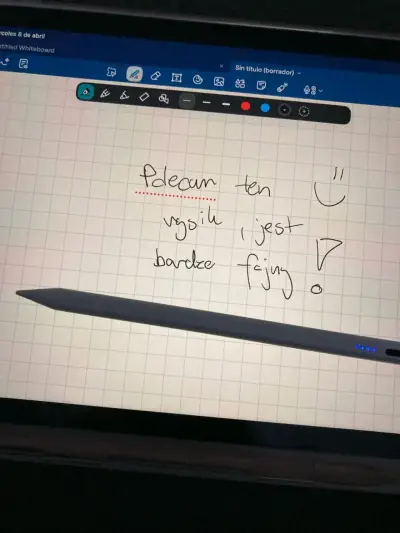 rcoles 8 de abril
ntitled Whiteboard
Sin título (borrador)
Pdecam ten
rysik, jest
bardzo fajny!